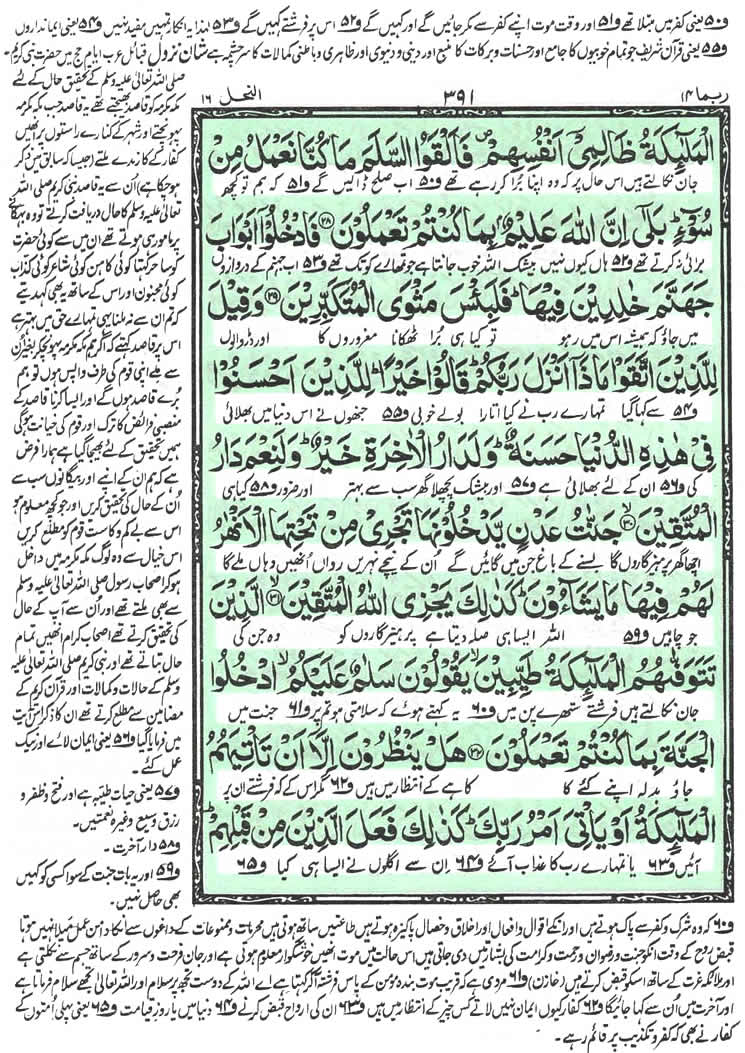 ف۵۰ یعنی کفر میں مبتلا تھے ف۵۱ اور وقت موت اپنے کفر سے مکر جائیں گے اور کہیں گے ف۵۲ اس پر فرشتے کہیں گے ف۵۳ لہذا یہ انکار تمہیں مفید نہیں ف۵۴ یعنی ایمانداروں
ف۵۵ یعنی قرآن شریف جو تمام خوبیوں کا جامع اور حسنات و برکات کا منبع اور دینی و دنیوی اور ظاہری و باطنی کمالات کا سرچشمہ ہے شان نزول قبائل عرب ایام حج میں حضرت نبی کریم
صلی اللہ تعالیٰ علیہ وسلم کے تحقیق حال کے لئے
مکہ مکرمہ کو قاصد بھیجتے تھے یہ قاصد جب مکہ مکرمہ
پہونچتے اور شہر کے کنارے راستوں پر انہیں
کفار کے کارندے ملتے (جیسا کہ سابق میں ذکر
ہو چکا ہے) اُن سے یہ قاصد نبی کریم صلی اللہ
تعالیٰ علیہ وسلم کا حال دریافت کرتے تو وہ بہکانے
پر مامور ہی ہوتے تھے ان میں سے کوئی حضرت
کو ساحر کہتا کوئی کاہن کوئی شاعر کوئی کذاب
کوئی مجنون اور اس کے ساتھ یہ بھی کہہ دیتے
کہ تم ان سے نہ ملنا یہی تمہارے حق میں بہتر ہے
اس پر قاصد کہتے کہ اگر ہم مکہ مکرمہ پہونچ کر بغیر ان
سے ملے اپنی قوم کی طرف واپس ہوں تو ہم
بُرے قاصد ہوں گے اور ایسا کرنا قاصد کے
منصبی فرائض کا ترک اور قوم کی خیانت ہوگی
ہمیں تحقیق کے لئے بھیجا گیا ہے ہمارا فرض
ہے کہ ہم ان کے اپنے اور بیگانوں سب سے
اُن کے حال کی تحقیق کریں اور جو کچھ معلوم ہو
اس سے بے کم و کاست قوم کو مطلع کریں
اس خیال سے وہ لوگ مکہ مکرمہ میں داخل
ہو کر اصحاب رسول صلی اللہ تعالیٰ علیہ وسلم
سے بھی ملتے تھے اور اُن سے آپ کے حال
کی تحقیق کرتے تھے اصحاب کرام انہیں تمام
حال بتاتے تھے اور نبی کریم صلی اللہ تعالیٰ علیہ
وسلم کے حالات و کمالات اور قرآن کریم کے
مضامین سے مطلع کرتے تھے ان کا ذکر اس آیت
میں فرمایا گیا ف۵۶ یعنی ایمان لائے اور نیک
عمل کئے۔
ف۵۷ یعنی حیات طیبہ ہے اور فتح و ظفر و
رزق وسیع وغیرہ نعمتیں۔
ف۵۸ دار آخرت۔
ف۵۹ اور یہ بات جنت کے سوا کسی کو کہیں
بھی حاصل نہیں۔
ربما ۱۴ ۳۹۱ النحل ۱۶
الْمَلٰٓئِكَةُ ظَالِمِيْٓ اَنْفُسِهِمْ ۪ فَاَلْقَوُا السَّلَمَ مَا كُنَّا نَعْمَلُ مِنْ
جان نکالتے ہیں اس حال پر کہ وہ اپنا برا کر رہے تھے ف۵۰ اب صلح ڈالیں گے ف۵۱ کہ ہم تو کچھ
سُوْٓءٍ ؕ بَلٰٓى اِنَّ اللّٰهَ عَلِيْمٌۢ بِمَا كُنْتُمْ تَعْمَلُوْنَ ۝۲۸ فَادْخُلُوْٓا اَبْوَابَ
برائی نہ کرتے تھے ف۵۲ ہاں کیوں نہیں بیشک اللہ خوب جانتا ہے جو تمہارے کوتک تھے ف۵۳ اب جہنم کے دروازوں
جَهَنَّمَ خٰلِدِيْنَ فِيْهَا ؕ فَلَبِئْسَ مَثْوَى الْمُتَكَبِّرِيْنَ ۝۲۹ وَقِيْلَ
میں جاؤ کہ ہمیشہ اس میں رہو تو کیا ہی برا ٹھکانا مغروروں کا اور ڈر والوں
لِلَّذِيْنَ اتَّقَوْا مَاذَآ اَنْزَلَ رَبُّكُمْ ؕ قَالُوْا خَيْرًا ؕ لِلَّذِيْنَ اَحْسَنُوْا
ف۵۴ سے کہا گیا تمہارے رب نے کیا اتارا بولے خوبی ف۵۵ جنھوں نے اس دنیا میں بھلائی
فِيْ هٰذِهِ الدُّنْيَا حَسَنَةٌ ؕ وَلَدَارُ الْاٰخِرَةِ خَيْرٌ ؕ وَلَنِعْمَ دَارُ
کی ف۵۶ ان کے لئے بھلائی ہے ف۵۷ اور بیشک پچھلا گھر سب سے بہتر اور ضرور ف۵۸ کیا ہی
الْمُتَّقِيْنَ ۝۳۰ جَنّٰتُ عَدْنٍ يَّدْخُلُوْنَهَا تَجْرِيْ مِنْ تَحْتِهَا الْاَنْهٰرُ
اچھا گھر پرہیزگاروں کا بسنے کے باغ جن میں جائیں گے اُن کے نیچے نہریں رواں اُنھیں وہاں ملے گا
لَهُمْ فِيْهَا مَا يَشَآءُوْنَ ؕ كَذٰلِكَ يَجْزِي اللّٰهُ الْمُتَّقِيْنَ ۝۳۱ الَّذِيْنَ
جو چاہیں ف۵۹ اللہ ایسا ہی صلہ دیتا ہے پرہیزگاروں کو وہ جن کی
تَتَوَفّٰىهُمُ الْمَلٰٓئِكَةُ طَيِّبِيْنَ ۙ يَقُوْلُوْنَ سَلٰمٌ عَلَيْكُمُ ۙ ادْخُلُوا
جان نکالتے ہیں فرشتے ستھرے پن میں ف۶۰ یہ کہتے ہوئے کہ سلامتی ہو تم پر ف۶۱ جنت میں
الْجَنَّةَ بِمَا كُنْتُمْ تَعْمَلُوْنَ ۝۳۲ هَلْ يَنْظُرُوْنَ اِلَّآ اَنْ تَاْتِيَهُمُ
جاؤ بدلہ اپنے کئے کا کاہے کے انتظار میں ہیں ف۶۲ مگر اس کے کہ فرشتے ان پر
الْمَلٰٓئِكَةُ اَوْ يَاْتِيَ اَمْرُ رَبِّكَ ؕ كَذٰلِكَ فَعَلَ الَّذِيْنَ مِنْ قَبْلِهِمْ ؕ
آئیں ف۶۳ یا تمہارے رب کا عذاب آئے ف۶۴ اِن سے اگلوں نے ایسا ہی کیا ف۶۵
ف۶۰ کہ وہ شرک و کفر سے پاک ہوتے ہیں اور انکے اقوال و افعال اور اخلاق و خصال پاکیزہ ہوتے ہیں طاعتیں ساتھ ہوتی ہیں محرمات و ممنوعات کے داغوں سے انکا دامن عمل میلا نہیں ہوتا
قبض روح کے وقت انکو جنت و رضوان و رحمت و کرامت کی بشارتیں دی جاتی ہیں اس حالت میں موت انھیں خوشگوار معلوم ہوتی ہے اور جان فرحت و سرور کے ساتھ جسم سے نکلتی ہے
اور ملائکہ عزت کے ساتھ اسکو قبض کرتے ہیں (خازن) ف۶۱ مروی ہے کہ قریب موت بندہ مؤمن کے پاس فرشتہ آکر کہتا ہے اے اللہ کے دوست تجھ پر سلام اور اللہ تعالیٰ تجھے سلام فرماتا ہے
اور آخرت میں اُن سے کہا جائیگا ف۶۲ کفار کیوں ایمان نہیں لاتے کس چیز کے انتظار میں ہیں ف۶۳ ان کی ارواح قبض کرنے ف۶۴ دنیا میں یا روز قیامت ف۶۵ یعنی پہلی اُمتوں کے
کفار نے بھی کہ کفر و تکذیب پر قائم رہے۔